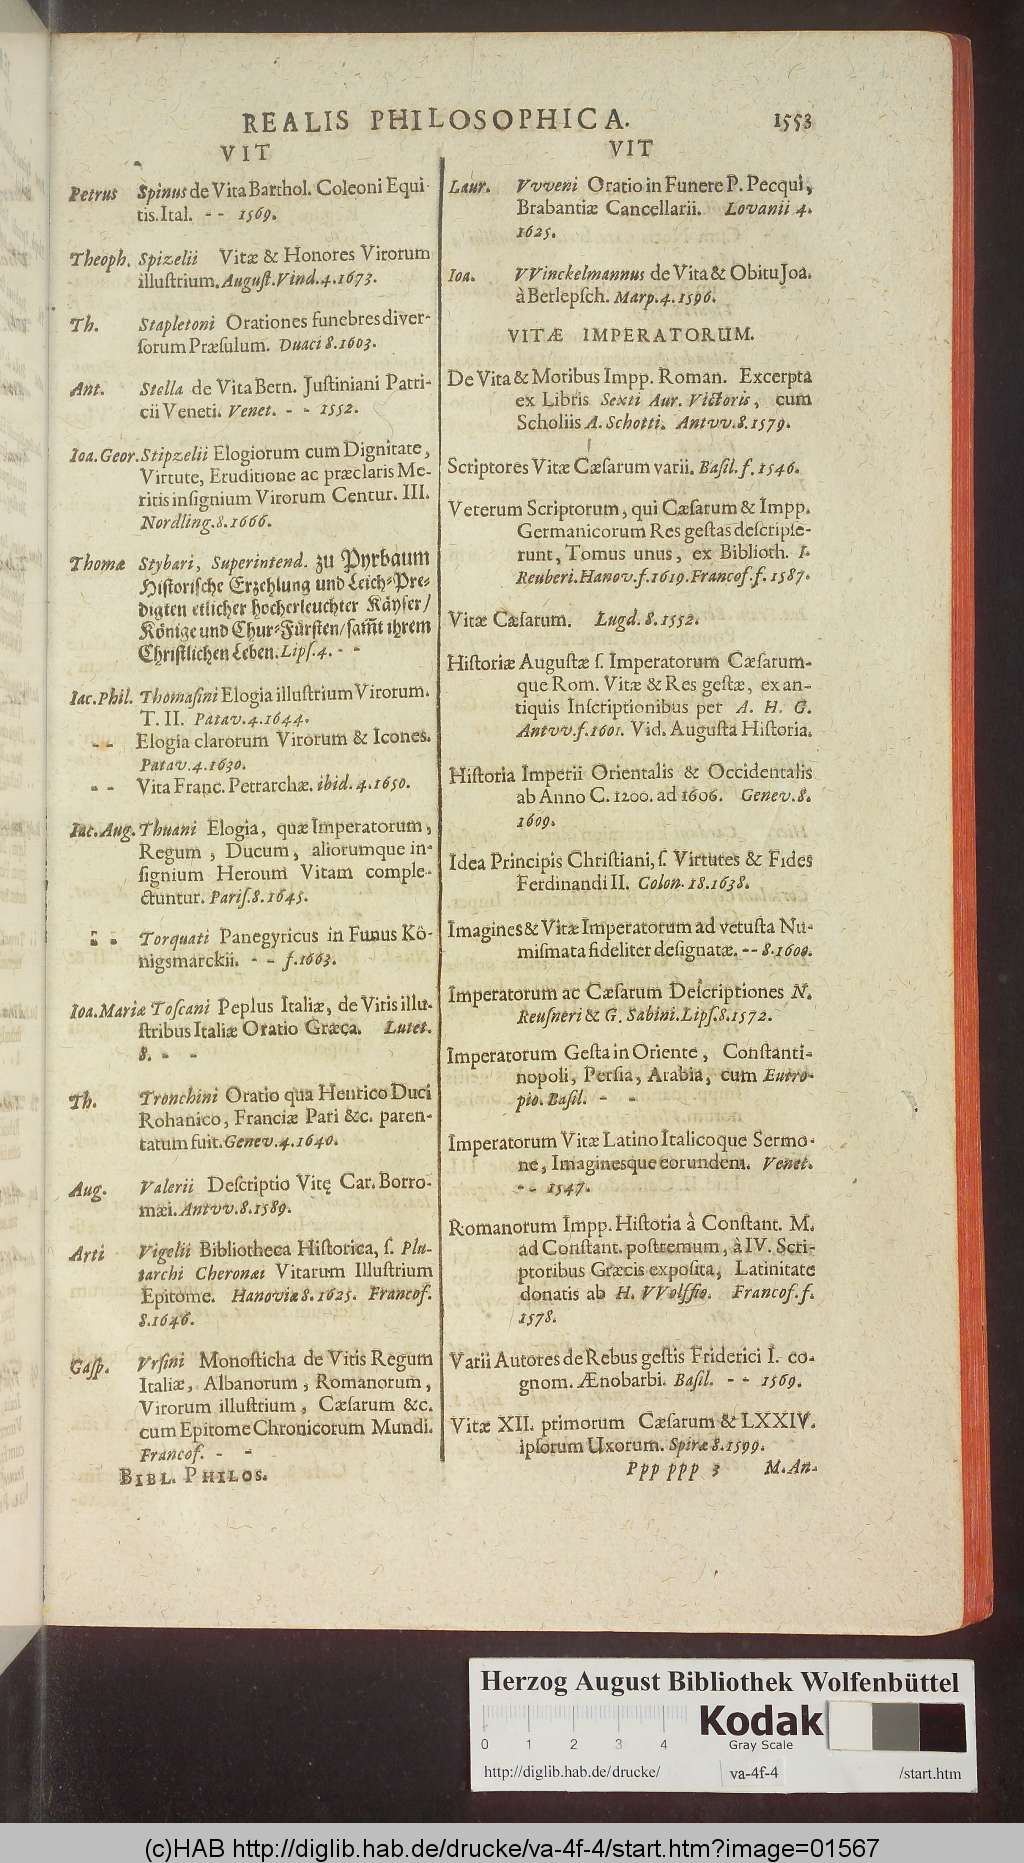 REALIS PHILOSOPHICA. 1553
VIT
Petrus Spinus de Vita Barthol. Coleoni Equi-
tis. Ital. -- 1569.
Theoph. Spizelii Vitæ & Honores Virorum
illustrium. August. Vind. 4. 1673.
Th. Stapletoni Orationes funebres diver-
sorum Præsulum. Duaci 8. 1603.
Ant. Stella de Vita Bern. Justiniani Patri-
cii Veneti. Venet. - - 1552.
Ioa. Geor. Stipzelii Elogiorum cum Dignitate,
Virtute, Eruditione ac præclaris Me-
ritis insignium Virorum Centur. III.
Nordling. 8. 1666.
Thomæ Stybari, Superintend. zu Pyrbaum
Historische Erzehlung und Leich-Pre-
digten etlicher hocherleuchter Käyser/
Könige und Chur-Fürsten/ sam̃t ihrem
Christlichen Leben. Lips. 4. - -
Iac. Phil. Thomasini Elogia illustrium Virorum.
T. II. Patav. 4. 1644.
- - Elogia clarorum Virorum & Icones.
Patav. 4. 1630.
- - Vita Franc. Petrarchæ. ibid. 4. 1650.
Iac. Aug. Thuani Elogia, quæ Imperatorum,
Regum, Ducum, aliorumque in-
signium Heroum Vitam comple-
ctuntur. Paris. 8. 1645.
- - Torquati Panegyricus in Funus Kö-
nigsmarckii. - - f. 1663.
Ioa. Mariæ Toscani Peplus Italiæ, de Vitis illu-
stribus Italiæ Oratio Græca. Lutet.
8. - -
Th. Tronchini Oratio qua Henrico Duci
Rohanico, Franciæ Pari &c. paren-
tatum fuit. Genev. 4. 1640.
Aug. Valerii Descriptio Vitę Car. Borro-
mæi. Antvv. 8. 1589.
Arti Vigelii Bibliotheca Historica, s. Plu-
tarchi Cheronæi Vitarum Illustrium
Epitome. Hanoviæ 8. 1625. Francof.
8. 1646.
Gasp. Ursini Monosticha de Vitis Regum
Italiæ, Albanorum, Romanorum,
Virorum illustrium, Cæsarum &c.
cum Epitome Chronicorum Mundi.
Francof. - -
BIBL. PHILOS.
VIT
Laur. Vvveni Oratio in Funere P. Pecqui,
Brabantiæ Cancellarii. Lovanii 4.
1625.
Ioa. VVinckelmannus de Vita & Obitu Joa.
à Berlepsch. Marp. 4. 1596.
VITÆ IMPERATORUM.
De Vita & Moribus Impp. Roman. Excerpta
ex Libris Sexti Aur. Victoris, cum
Scholiis A. Schotti. Antvv. 8. 1579.
Scriptores Vitæ Cæsarum varii. Basil. f. 1546.
Veterum Scriptorum, qui Cæsarum & Impp.
Germanicorum Res gestas descripse-
runt, Tomus unus, ex Biblioth. I.
Reuberi. Hanov. f. 1619. Francof. f. 1587.
Vitæ Cæsarum. Lugd. 8. 1552.
Historiæ Augustæ s. Imperatorum Cæsarum-
que Rom. Vitæ & Res gestæ, ex an-
tiquis Inscriptionibus per A. H. G.
Antvv. f. 1601. Vid. Augusta Historia.
Historia Imperii Orientalis & Occidentalis
ab Anno C. 1200. ad 1606. Genev. 8.
1609.
Idea Principis Christiani, s. Virtutes & Fides
Ferdinandi II. Colon. 18. 1638.
Imagines & Vitæ Imperatorum ad vetusta Nu-
mismata fideliter designatæ. -- 8. 1600.
Imperatorum ac Cæsarum Descriptiones N.
Reusneri & G. Sabini. Lips. 8. 1572.
Imperatorum Gesta in Oriente, Constanti-
nopoli, Persia, Arabia, cum Eutro-
pio. Basil. - -
Imperatorum Vitæ Latino Italicoque Sermo-
ne, Imaginesque eorundem. Venet.
- - 1547.
Romanorum Impp. Historia à Constant. M.
ad Constant. postremum, à IV. Scri-
ptoribus Græcis exposita, Latinitate
donatis ab H. VVolffio. Francof. f.
1578.
Varii Autores de Rebus gestis Friderici I. co-
gnom. Ænobarbi. Basil. - - 1569.
Vitæ XII. primorum Cæsarum & LXXIV.
ipsorum Uxorum. Spiræ 8. 1599.
Ppp ppp 3 M. An-
Herzog August Bibliothek Wolfenbüttel
Kodak
Gray Scale
0 1 2 3 4
http://diglib.hab.de/drucke/ va-4f-4 /start.htm
(c)HAB http://diglib.hab.de/drucke/va-4f-4/start.htm?image=01567